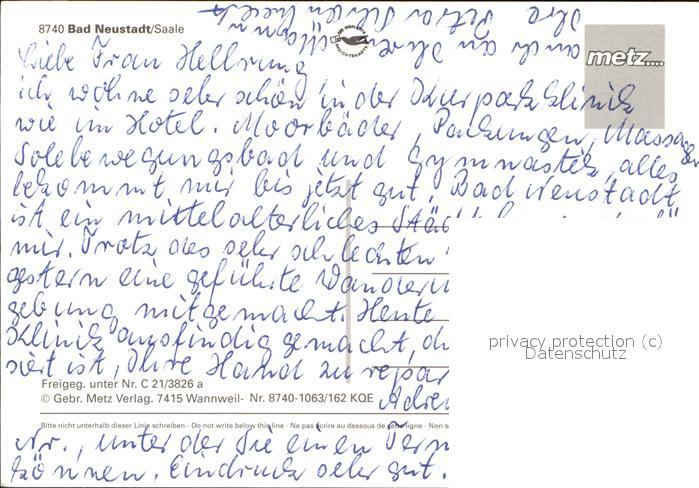 8740 Bad Neustadt/Saale
metz....
Liebe Frau Hellrung
ich wohne sehr schön in der Kurparkklinik
wie im Hotel. Moorbäder, Packungen, Massagen
Solebewegungsbad und Gymnastik, alles
bekommt mir bis jetzt gut. Bad Neustadt
ist ein mittelalterliches
mir. Trotz des sehr schlechten
gestern eine geführte
gebung mitgemacht. Heute
Klinik ausfindig gemacht,
siert ist, Ihre Hand zu
Nr., unter der Sie einen
können. Eindruck sehr gut.
auch an Ihren Mann
Ihre Petra
privacy protection (c)
Datenschutz
Freigeg. unter Nr. C 21/3826 a
© Gebr. Metz Verlag. 7415 Wannweil- Nr. 8740-1063/162 KQE
Bitte nicht unterhalb dieser Linie schreiben - Do not write below this line - Ne pas écrire au dessous de cette ligne - Non s